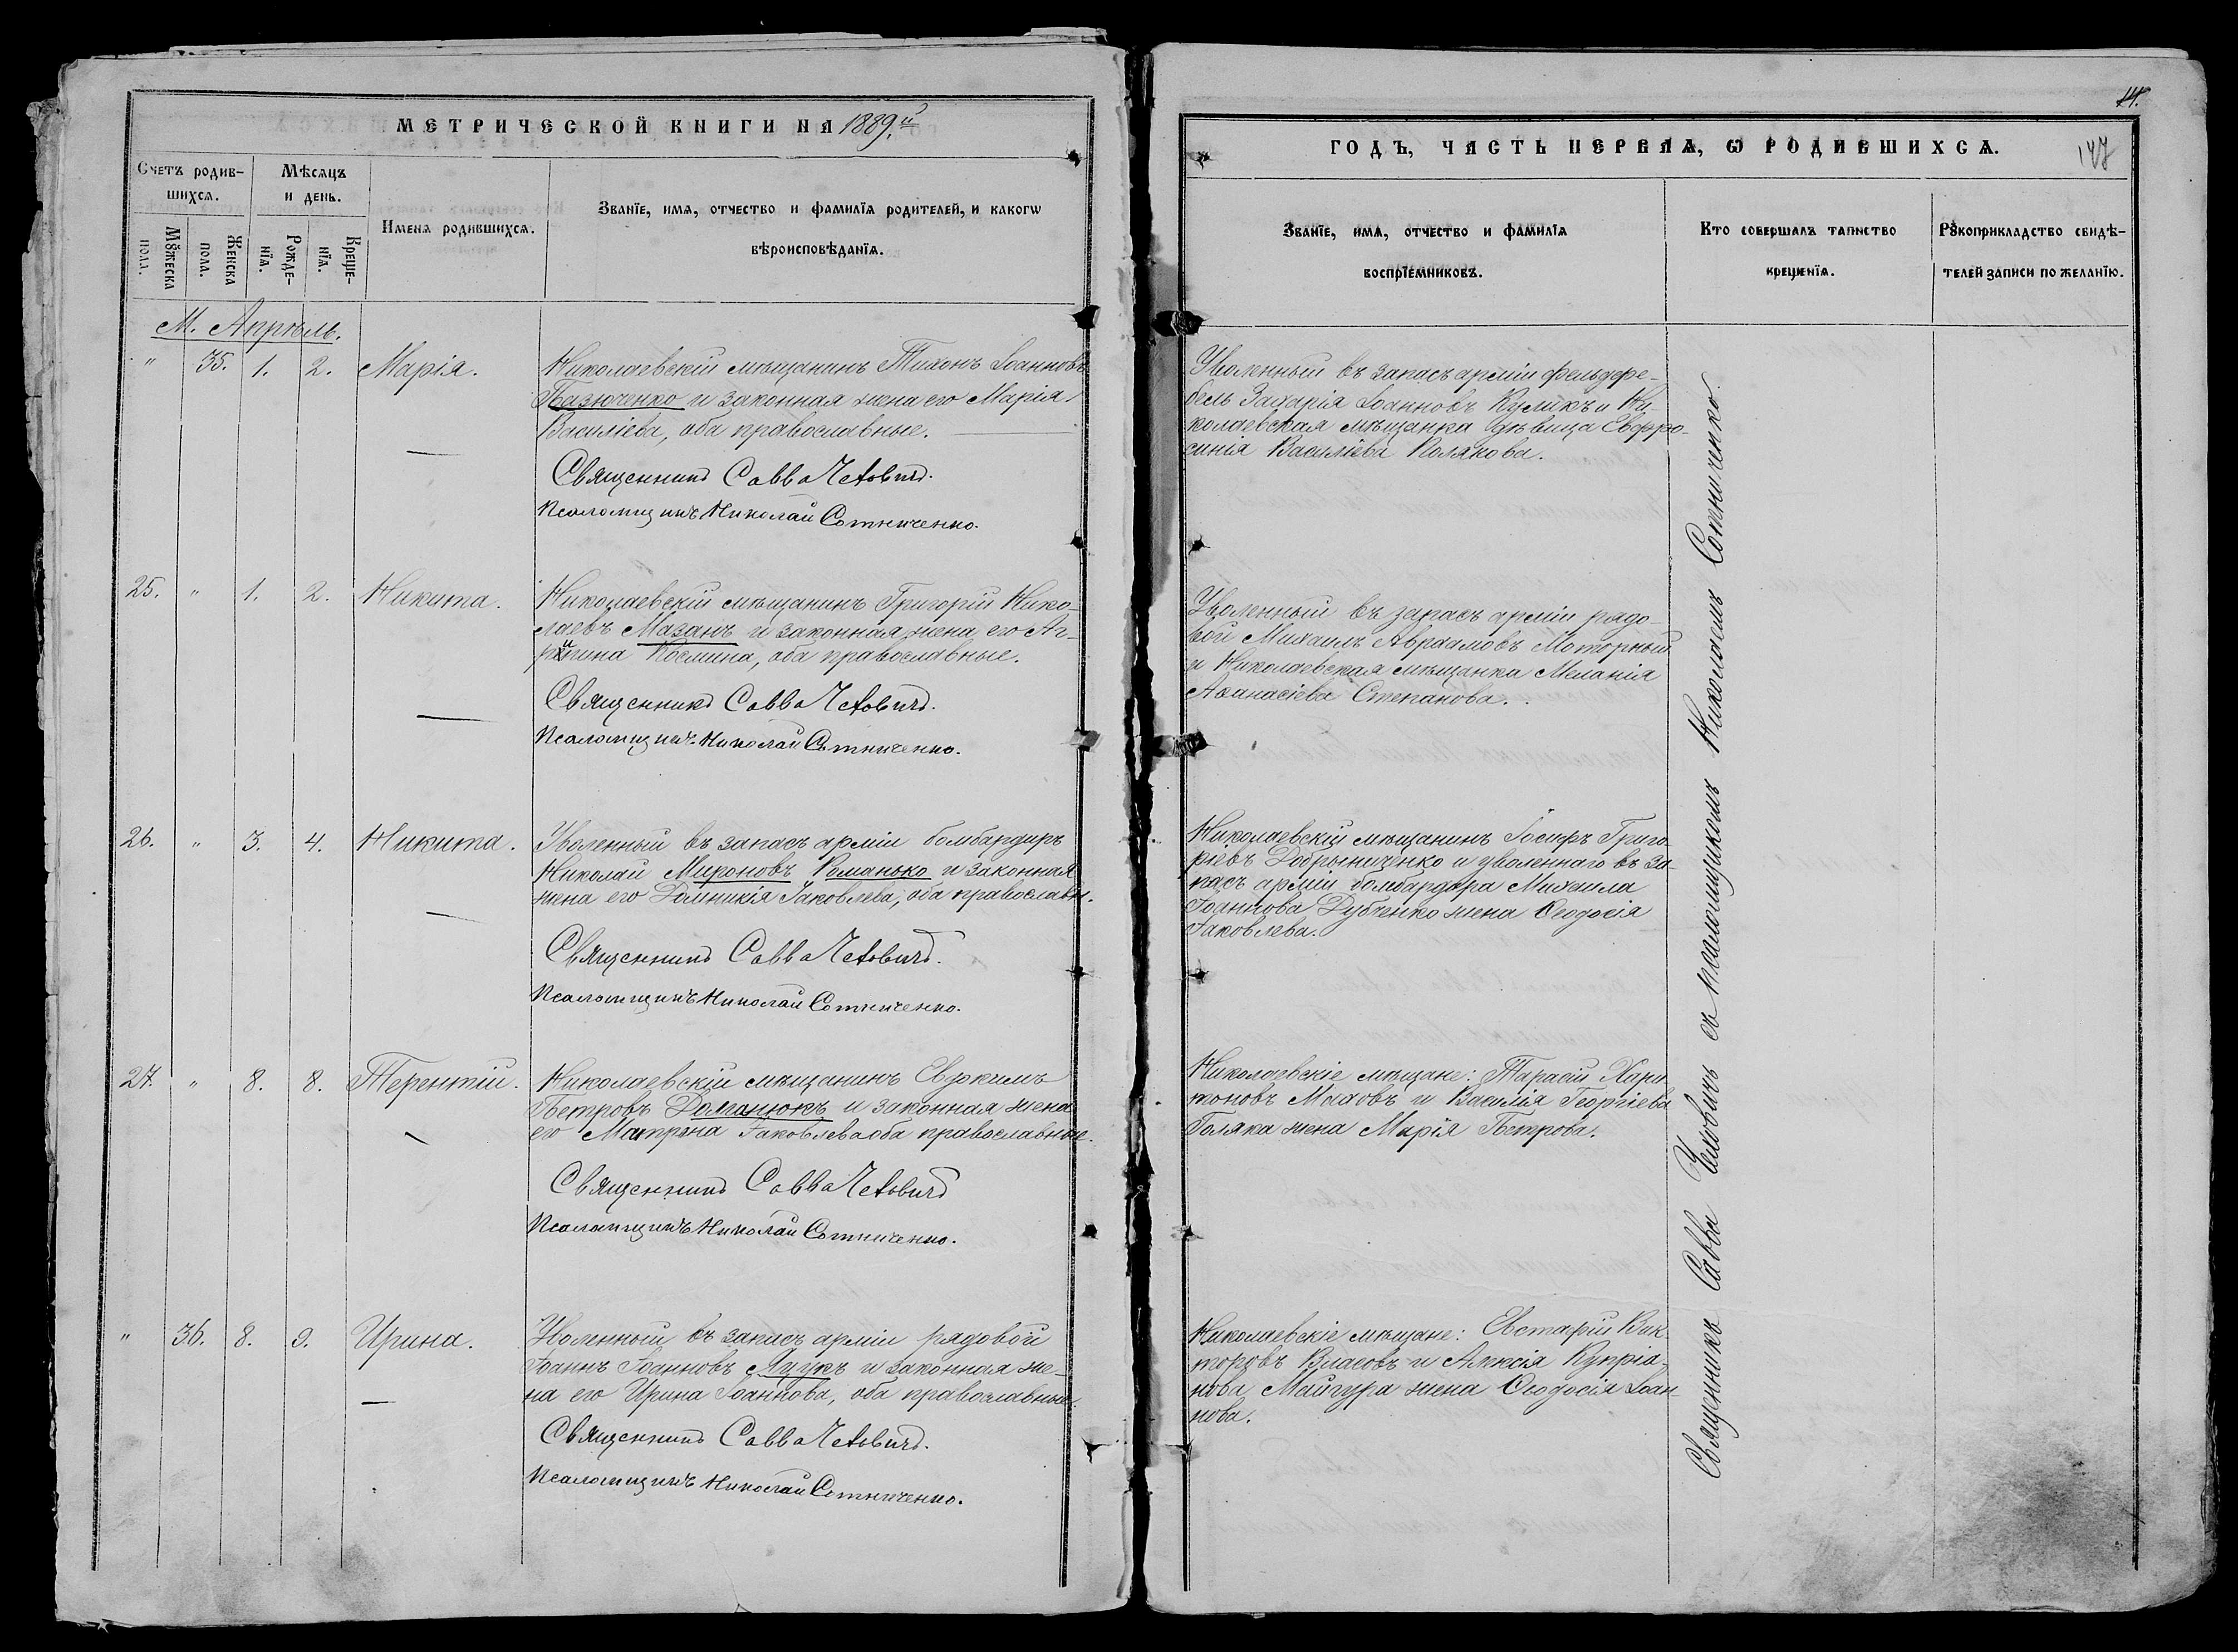 МЕТРИЧЕСКОЙ КНИГИ НА 1889й
Счетъ родив-
шихся.
Мѣсяцъ
и день.
Имена родившихся.
Званїе, имя, отчество и фамилїя родителей, и какогω
вѣроисповѣданїя.
Мꙋжеска
пола.
Женска
пола.
Рожде-
нїя.
Креще-
нїя.
М. Апрѣль.
" 35. 1. 2. Марія.
Николаевскій мѣщанинъ Тихонъ Іоанновъ
Базюченко и законная жена его Марія
Василіева, оба православные.
Священникъ Савва Чеховичъ.
Псаломщикъ Николай Сотниченко.
25. " 1. 2. Никита.
Николаевскій мѣщанинъ Григорій Нико-
лаевъ Мазанъ и законная жена его Аг-
рипина Космина, оба православные.
Священникъ Савва Чеховичъ.
Псаломщикъ Николай Сотниченко.
26. " 3. 4. Никита.
Уволенный въ запасъ арміи бомбардиръ
Николай Мироновъ Романько и законная
жена его Домникія Іаковлева, оба православн.
Священникъ Савва Чеховичъ.
Псаломщикъ Николай Сотниченко.
27. " 8. 8. Терентій.
Николаевскій мѣщанинъ Евдокимъ
Петровъ Долганюкъ и законная жена
его Матрона Іаковлева оба православные.
Священникъ Савва Чеховичъ
Псаломщикъ Николай Сотниченко.
" 36. 8. 9. Ирина.
Уволенный въ запасъ арміи рядовой
Іоаннъ Іоанновъ Яцукъ и законная же-
на его Ирина Іоаннова, оба православные.
Священникъ Савва Чеховичъ.
Псаломщикъ Николай Сотниченко.
14.
147
ГОДЪ, ЧАСТЬ ПЕРВАѦ, Ѡ РОДИВШИХСѦ.
Званїе, имя, отчество и фамилїя
воспрїемниковъ.
Кто совершалъ таинство
крещенїя.
Рꙋкоприкладство свидѣ-
телей записи по желанїю.
Уволенный въ запасъ арміи фельдфе-
бель Захарія Іоанновъ Куликъ и Ни-
колаевская мѣщанка дѣвица Евфро-
синія Василіева Полякова.
Уволенный въ запасъ арміи рядо-
вой Михаилъ Авраамовъ Моторный
и Николаевская мѣщанка Меланія
Аѳанасіева Степанова.
Николаевскій мѣщанинъ Іосифъ Григо-
ріевъ Добрыниченко и уволеннаго въ за-
пасъ арміи бомбардира Михаила
Іоаннова Дубченко жена Ѳеодосія
Іаковлева.
Николаевскіе мѣщане: Тарасій Хари-
тоновъ Маховъ и Василія Георгіева
Голяка жена Марія Петрова.
Николаевскіе мѣщане: Евстафій Вик-
торовъ Власовъ и Алексія Купріа-
нова Майгура жена Ѳеодосія Іоан-
нова.
Священникъ Савва Чеховичъ съ псаломщикомъ Николаемъ Сотниченко.